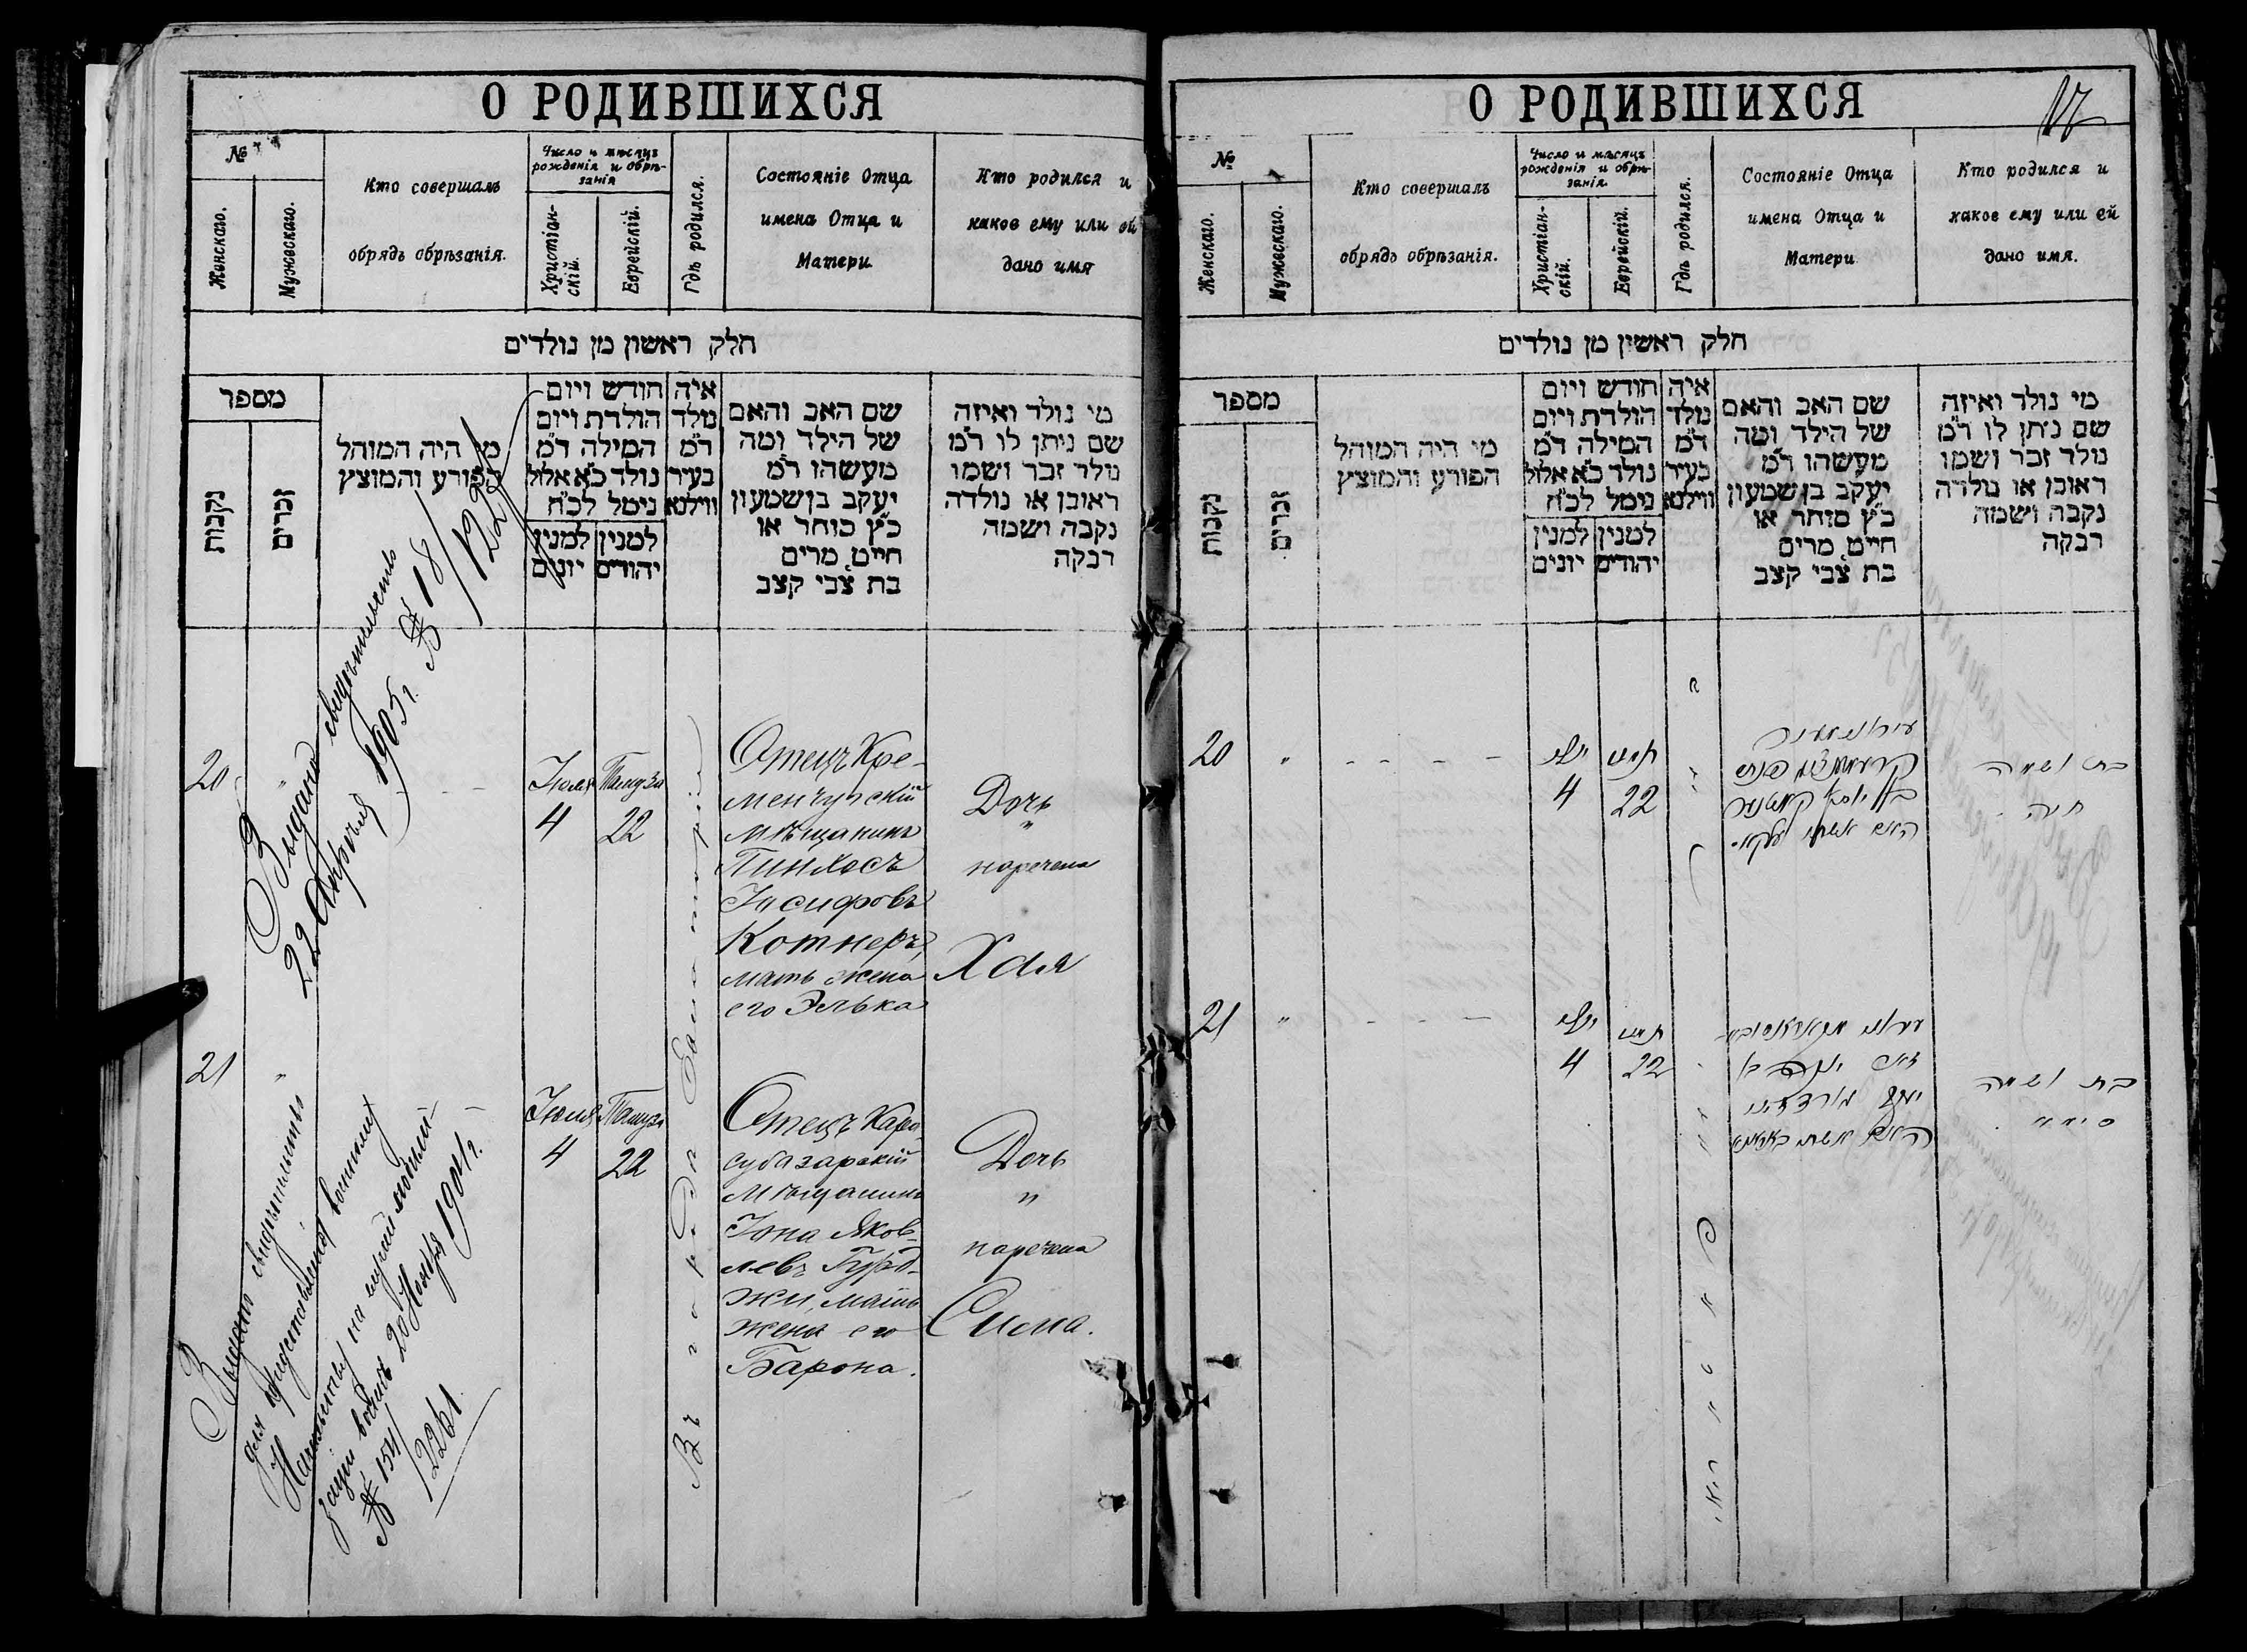 О РОДИВШИХСЯ
№
Женскаго.
Мужескаго.
Кто совершалъ
обрядъ обрѣзанія.
Число и мѣсяцъ
рожденія и обрѣ-
занія
Христіан-
скій.
Еврейскій.
Гдѣ родился.
Состояніе Отца
имена Отца и
Матери
Кто родился и
какое ему или ей
дано имя
חלק ראשון מן נולדים
מספר
נקבות
זכרים
מי היה המוהל
הפורע והמוצץ
חודש ויום
הולדת ויום
המילה ד״מ
נולד כ״א אלול
נימל לכ״ח
למנין למנין
יהודים יונים
איה
נולד
ד״מ
בעיר
ווילנא
שם האב והאם
של הילד ומה
מעשהו ד״מ
יעקב בן שמעון
כ״ץ סוחר או
חייט מרים
בת צבי קצב
מי נולד ואיזה
שם ניתן לו ד״מ
נולד זכר ושמו
ראובן או נולדה
נקבה ושמה
רבקה
20
"
Выдано свидѣтельство
22 Апрѣля 1905 г. № 18/122
Іюля
4
Тамуза
22
Отецъ Кре-
менчугскій
мѣщанинъ
Пинхосъ
Іосифовъ
Котнеръ,
мать жена
его Элька
Дочь
"
наречена
Хая
21
"
Выдано свидѣтельство
для представленія
20 Ноября 1904 г.
№ 154/1226
Іюля
4
Тамуза
22
Въ городѣ Евпаторіи
Отецъ Кара-
субазарскій
мѣщанинъ
Іона Яков-
левъ Гурд-
жи, мать
жена его
Барона.
Дочь
"
наречена
Сима.
О РОДИВШИХСЯ
17
№
Женскаго.
Мужескаго.
Кто совершалъ
обрядъ обрѣзанія.
Число и мѣсяцъ
рожденія и обрѣ-
занія.
Христіан-
скій.
Еврейскій.
Гдѣ родился.
Состояніе Отца
имена Отца и
Матери
Кто родился и
какое ему или ей
дано имя.
חלק ראשון מן נולדים
מספר
נקבות
זכרים
מי היה המוהל
הפורע והמוצץ
חודש ויום
הולדת ויום
המילה ד״מ
נולד כ״א אלול
נימל לכ״ח
למנין למנין
יהודים יונים
איה
נולד
ד״מ
בעיר
ווילנא
שם האב והאם
של הילד ומה
מעשהו ד״מ
יעקב בן שמעון
כ״ץ סוחר או
חייט מרים
בת צבי קצב
מי נולד ואיזה
שם ניתן לו ד״מ
נולד זכר ושמו
ראובן או נולדה
נקבה ושמה
רבקה
20
"
יולי
4
תמוז
22
בת ושמה
חיה
21
"
יולי
4
תמוז
22
בת ושמה
סימא